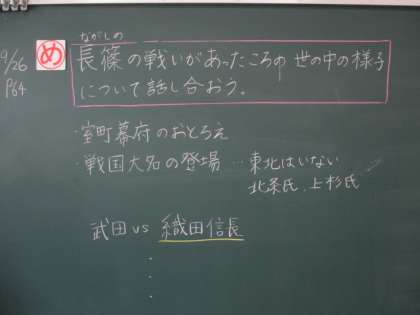 9/26
P64
め
ながしの
長篠の戦いがあったころの世の中の様子
について話し合おう。
・室町幕府のおとろえ
・戦国大名の登場 …東北はいない
北条氏、上杉氏
武田 vs 織田信長
・
・
・
・